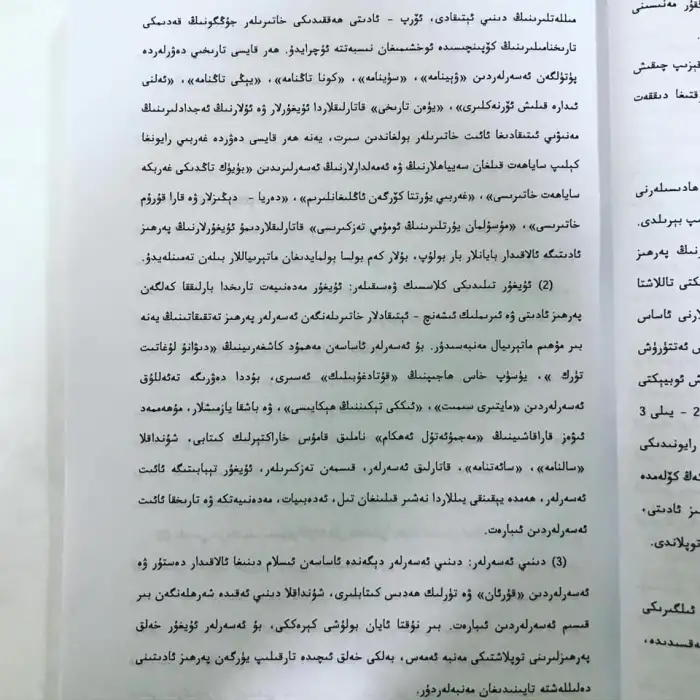 مىللەتلىرىنىڭ دىنىي ئېتىقادى، ئۆرپ - ئادىتى ھەققىدىكى خاتىرىلەر جۇڭگونىڭ قەدىمكى
تارىخنامىلىرىنىڭ كۆپىنچىسىدە ئوخشىمىغان نىسبەتتە ئۇچرايدۇ. ھەر قايسى تارىخىي دەۋرلەردە
پۈتۈلگەن ئەسەرلەردىن «ۋېينامە»، «سۈينامە»، «كونا تاڭنامە»، «يېڭى تاڭنامە»، «ئەلنى
ئىدارە قىلىش ئۆرنەكلىرى»، «يۈەن تارىخى» قاتارلىقلاردا ئۇيغۇرلار ۋە ئۇلارنىڭ ئەجدادلىرىنىڭ
مەنىۋىي ئېتىقادىغا ئائىت خاتىرىلەر بولغاندىن سىرت، يەنە ھەر قايسى دەۋردە غەربىي رايونغا
كېلىپ ساياھەت قىلغان سەيياھلارنىڭ ۋە ئەمەلدارلارنىڭ ئەسەرلىرىدىن «بۈيۈك تاڭدىكى غەربكە
ساياھەت خاتىرىسى»، «غەربىي يۇرتتا كۆرگەن ئاڭلىغانلىرىم»، «دەريا - دېڭىزلار ۋە قارا قۇرۇم
خاتىرىسى»، «مۇسۇلمان يۇرتلىرىنىڭ ئومۇمى تەزكىرىسى» قاتارلىقلاردىمۇ ئۇيغۇرلارنىڭ پەرھىز
ئادىتىگە ئالاقىدار بايانلار بار بولۇپ، بۇلار كەم بولسا بولمايدىغان ماتېرىياللار بىلەن تەمىنلەيدۇ.
(2) ئۇيغۇر تىلىدىكى كلاسسىك ۋەسىقىلەر: ئۇيغۇر مەدەنىيەت تارىخدا بارلىققا كەلگەن
پەرھىز ئادىتى ۋە ئىرىملىك ئىشەنچ - ئېتىقادلار خاتىرىلەنگەن ئەسەرلەر پەرھىز تەتقىقاتىنىڭ يەنە
بىر مۇھىم ماتېرىيال مەنبەسىدۇر. بۇ ئەسەرلەر ئاساسەن مەھمۇد كاشغەرىينىڭ «دىۋانۇ لۇغاتىت
تۈرك »، يۈسۈپ خاس ھاجىپنىڭ «قۇتادغۇبىلىك» ئەسىرى، بۇددا دەۋرىگە تەئەللۇق
ئەسەرلەردىن «مايتىرى سىمىت»، «ئىككى تېكىننىڭ ھېكايىسى»، ۋە باشقا يازمىشلار، مۇھەممەد
ئىۋەز قاراقاشىينىڭ «مەجمۇئەتۇل ئەھكام» ناملىق قامۇس خاراكتېرلىك كىتابى، شۇنداقلا
«سالنامە»، «سائەتنامە»، قاتارلىق ئەسەرلەر، قىسمەن تەزكىرىلەر، ئۇيغۇر تېبابىتىگە ئائىت
ئەسەرلەر، ھەمدە يېقىنقى يىللاردا نەشىر قىلىنغان تىل، ئەدەبىيات، مەدەنىيەتكە ۋە تارىخقا ئائىت
ئەسەرلەردىن ئىبارەت.
(3) دىنىي ئەسەرلەر: دىنىي ئەسەرلەر دېگەندە ئاساسەن ئىسلام دىنىغا ئالاقىدار دەستۇر ۋە
ئەسەرلەردىن «قۇرئان» ۋە تۈرلىك ھەدىس كىتابلىرى، شۇنداقلا دىنىي ئەقىدە شەرھلەنگەن بىر
قىسىم ئەسەرلەردىن ئىبارەت. بىر نۇقتا ئايان بولۇشى كېرەككى، بۇ ئەسەرلەر ئۇيغۇر خەلق
پەرھىزلىرىنى توپلاشتىكى مەنبە ئەمەس، بەلكى خەلق ئىچىدە تارقىلىپ يۈرگەن پەرھىز ئادىتىنى
دەلىللەشتە تايىنىدىغان مەنبەلەردۇر.
مەنىسىنى
قېزىپ چىقىش
دىققەت
ھادىسىلەرنى
بېرىلدى.
پەرھىز
تاللاشتا
ئاساس
ئەتتۈرۈش
ئوبيېكتى
2 - يىلى 3
رايونىدىكى
كۆلەمدە
ئادىتى،
توپلاندى.
ئىلگىرىكى